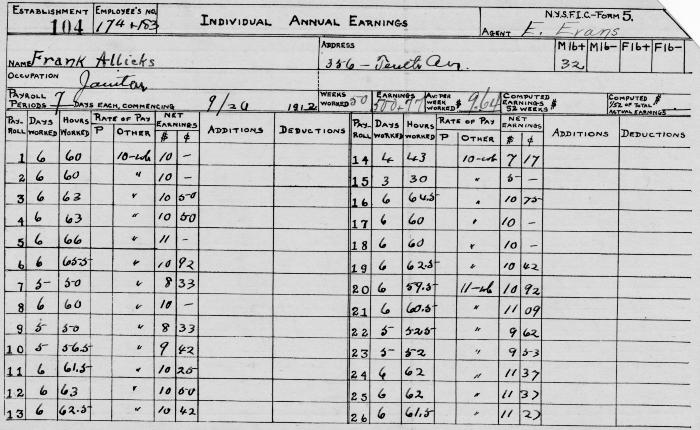 ESTABLISHMENT 104 EMPLOYEE'S NO. 174+183 INDIVIDUAL ANNUAL EARNINGS N.Y.S.F.I.C.-FORM 5.
AGENT E. Evans
NAME Frank Allicks ADDRESS 356 - Tenth Av. M16+ M16- F16+ F16-
32
OCCUPATION Janitor
PAYROLL PERIODS 7 DAYS EACH, COMMENCING 9/20 1912 WEEKS WORKED 50 EARNINGS $ 500+77 AV. PER WEEK WORKED $ 9.64 COMPUTED EARNINGS 52 WEEKS $ COMPUTED $ 1/52 OF TOTAL ACTUAL EARNINGS
PAY-ROLL DAYS WORKED HOURS WORKED RATE OF PAY P OTHER NET EARNINGS $ ¢ ADDITIONS DEDUCTIONS PAY-ROLL DAYS WORKED HOURS WORKED RATE OF PAY P OTHER NET EARNINGS $ ¢ ADDITIONS DEDUCTIONS
1 6 60 10-wk 10 - 14 4 43 10-wk 7 17
2 6 60 " 10 - 15 3 30 " 5 -
3 6 63 " 10 50 16 6 64.5 " 10 75
4 6 63 " 10 50 17 6 60 " 10 -
5 6 66 " 11 - 18 6 60 " 10 -
6 6 65.5 " 10 92 19 6 62.5 " 10 42
7 5 50 " 8 33 20 6 59.5 11-wk 10 92
8 6 60 " 10 - 21 6 60.5 " 11 09
9 5 50 " 8 33 22 5 52.5 " 9 62
10 5 56.5 " 9 42 23 5 52 " 9 53
11 6 61.5 " 10 25 24 6 62 " 11 37
12 6 63 " 10 50 25 6 62 " 11 37
13 6 62.5 " 10 42 26 6 61.5 " 11 27